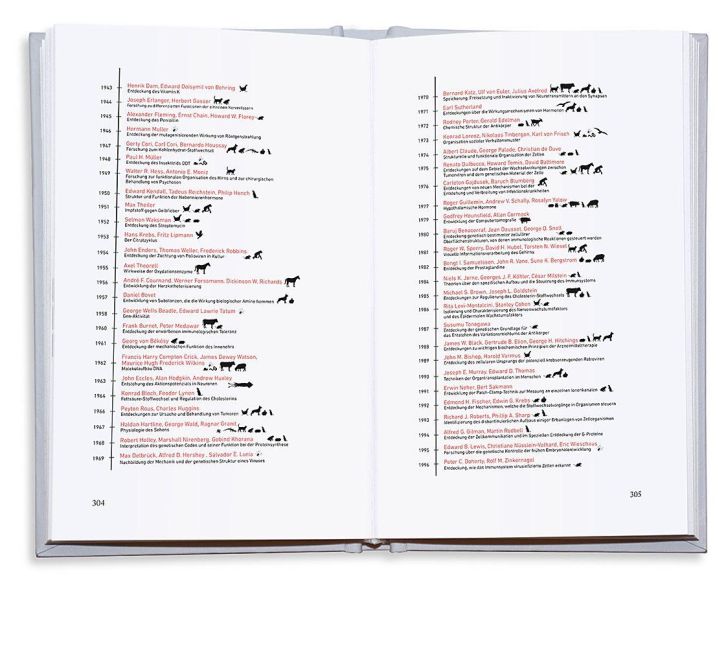 1943 Henrik Dam, Edward Doisymit von Behring
Entdeckung des Vitamin K
1944 Joseph Erlanger, Herbert Gasser
Forschung zu differenzierten Funktionen der einzelnen Nervenfasern
1945 Alexander Fleming, Ernst Chain, Howard W. Florey
Entdeckung des Penicillin
1946 Hermann Muller
Entdeckung der mutagenisierenden Wirkung von Röntgenstrahlung
1947 Gerty Cori, Carl Cori, Bernardo Houssay
Forschung zum Kohlenhydrat-Stoffwechsel
1948 Paul H. Müller
Entdeckung des Insektizids DDT
1949 Walter R. Hess, Antonio E. Moniz
Forschung zur funktionalen Organisation des Hirns und zur chirurgischen
Behandlung von Psychosen
1950 Edward Kendall, Tadeus Reichstein, Philip Hench
Struktur und Funktion der Nebennierenhormone
1951 Max Theiler
Impfstoff gegen Gelbfieber
1952 Selman Waksman
Entdeckung des Streptomycin
1953 Hans Krebs, Fritz Lipmann
Der Citratzyklus
1954 John Enders, Thomas Weller, Frederick Robbins
Entdeckung der Züchtung von Polioviren in Kultur
1955 Axel Theorell
Wirkweise der Oxydationsenzyme
1956 André F. Cournand, Werner Forssmann, Dickinson W. Richards
Entwicklung der Herzkatheterisierung
1957 Daniel Bovet
Entwicklung von Substanzen, die die Wirkung biologischer Amine hemmen
1958 George Wells Beadle, Edward Lawrie Tatum
Gen-Aktivität
1960 Frank Burnet, Peter Medawar
Entdeckung der erworbenen immunologischen Toleranz
1961 Georg von Békésy
Entdeckung der mechanischen Funktion des Innenohrs
1962 Francis Harry Compton Crick, James Dewey Watson,
Maurice Hugh Frederick Wilkins
Molekülaufbau DNA
1963 John Eccles, Alan Hodgkin, Andrew Huxley
Entstehung des Aktionspotenzials in Neuronen
1964 Konrad Bloch, Feodor Lynen
Fettsäure-Stoffwechsel und Regulation des Cholesterins
1966 Peyton Rous, Charles Huggins
Entdeckungen zur Ursache und Behandlung von Tumoren
1967 Haldan Hartline, George Wald, Ragnar Grand
Physiologie des Sehens
1968 Robert Holley, Marshall Nirenberg, Gobind Khorana
Interpretation des genetischen Codes und seiner Funktion bei der Proteinsynthese
1969 Max Delbrück, Alfred D. Hershey, Salvador E. Luria
Nachbildung der Mechanik und der genetischen Struktur eines Viruses
304
1970 Bernard Katz, Ulf von Euler, Julius Axelrod
Speicherung, Freisetzung und Inaktivierung von Neurotransmittern an den Synapsen
1971 Earl Sutherland
Entdeckungen über die Wirkungsmechanismen von Hormonen
1972 Rodney Porter, Gerald Edelman
Chemische Struktur der Antikörper
1973 Konrad Lorenz, Nikolaas Tinbergen, Karl von Frisch
Organisation sozialer Verhaltensmuster
1974 Albert Claude, George Palade, Christian de Duve
Strukturelle und funktionale Organisation der Zellen
1975 Renato Dulbecco, Howard Temin, David Baltimore
Entdeckungen auf dem Gebiet der Wechselwirkungen zwischen
Tumorviren und dem genetischen Material der Zelle
1976 Carleton Gajdusek, Baruch Blumberg
Entdeckungen von neuen Mechanismen bei der
Entstehung und Verbreitung von Infektionskrankheiten
1977 Roger Guillemin, Andrew V. Schally, Rosalyn Yalow
Hypothalamische Hormone
1979 Godfrey Hounsfield, Allan Cormack
Entwicklung der Computertomografie
1980 Baruj Benacerraf, Jean Dausset, George D. Snell
Entdeckung genetisch bestimmter zellulärer
Oberflächenstrukturen, von denen immunologische Reaktionen gesteuert werden
1981 Roger W. Sperry, David H. Hubel, Torsten N. Wiesel
Visuelle Informationsverarbeitung des Gehirns
1982 Bengt I. Samuelsson, John R. Vane, Sune K. Bergstrom
Entdeckung der Prostaglandine
1984 Niels K. Jerne, Georges J. F. Köhler, César Milstein
Theorien über den spezifischen Aufbau und die Steuerung des Immunsystems
1985 Michael S. Brown, Joseph L. Goldstein
Entdeckungen zur Regulierung des Cholesterin-Stoffwechsels
1986 Rita Levi-Montalcini, Stanley Cohen
Isolierung und Charakterisierung des Nervenwachstumsfaktors
und des Epidermalen Wachstumsfaktors
1987 Susumu Tonegawa
Entdeckung der genetischen Grundlage für
das Entstehen des Variationsreichtums der Antikörper
1988 James W. Black, Gertrude B. Elion, George H. Hitchings
Entdeckungen zu wichtigen biochemischen Prinzipien der Arzneimitteltherapie
1989 John M. Bishop, Harold Varmus
Entdeckung des zellulären Ursprungs der potenziell krebserzeugenden Retroviren
1990 Joseph E. Murray, Edward D. Thomas
Techniken der Organtransplantation im Menschen
1991 Erwin Neher, Bert Sakmann
Entwicklung der Patch-Clamp-Technik zur Messung an einzelnen Ionenkanälen
1992 Edmond H. Fischer, Edwin G. Krebs
Entdeckung der Mechanismen, welche die Stoffwechselvorgänge in Organismen steuern
1993 Richard J. Roberts, Phillip A. Sharp
Identifizierung des diskontinuierlichen Aufbaus einiger Erbanlagen von Zellorganismen
1994 Alfred G. Gilman, Martin Rodbell
Entdeckung der Zellkommunikation und im Speziellen Entdeckung der G-Proteine
1995 Edward B. Lewis, Christiane Nüsslein-Volhard, Eric Wieschaus
Forschung über die genetische Kontrolle der frühen Embryonalentwicklung
1996 Peter C. Doherty, Rolf M. Zinkernagel
Entdeckung, wie das Immunsystem virusinfizierte Zellen erkennt
305